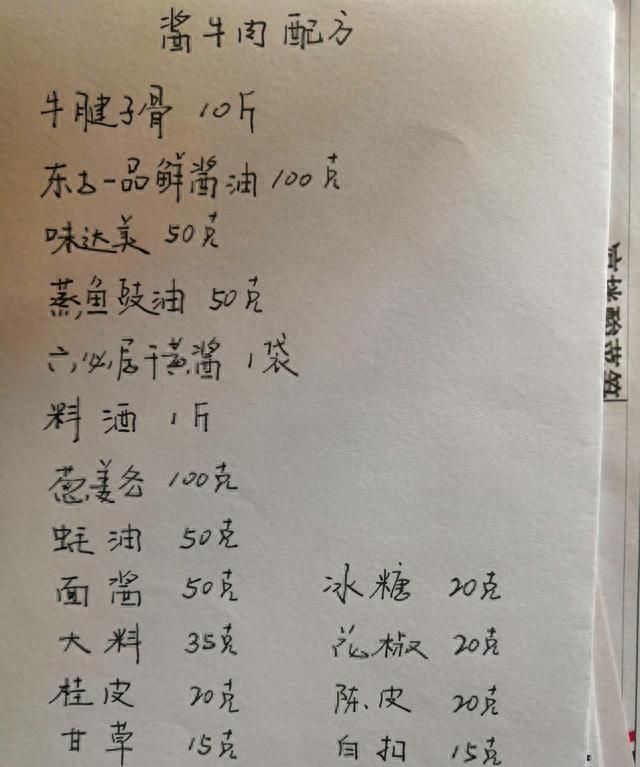 酱牛肉配方
牛腱子骨 10斤
东古一品鲜酱油 100克
味达美 50克
蒸鱼豉油 50克
六必居干黄酱 1袋
料酒 1斤
葱姜各 100克
蚝油 50克
面酱 50克 冰糖 20克
大料 35克 花椒 20克
桂皮 20克 陈皮 20克
甘草 15克 白扣 15克